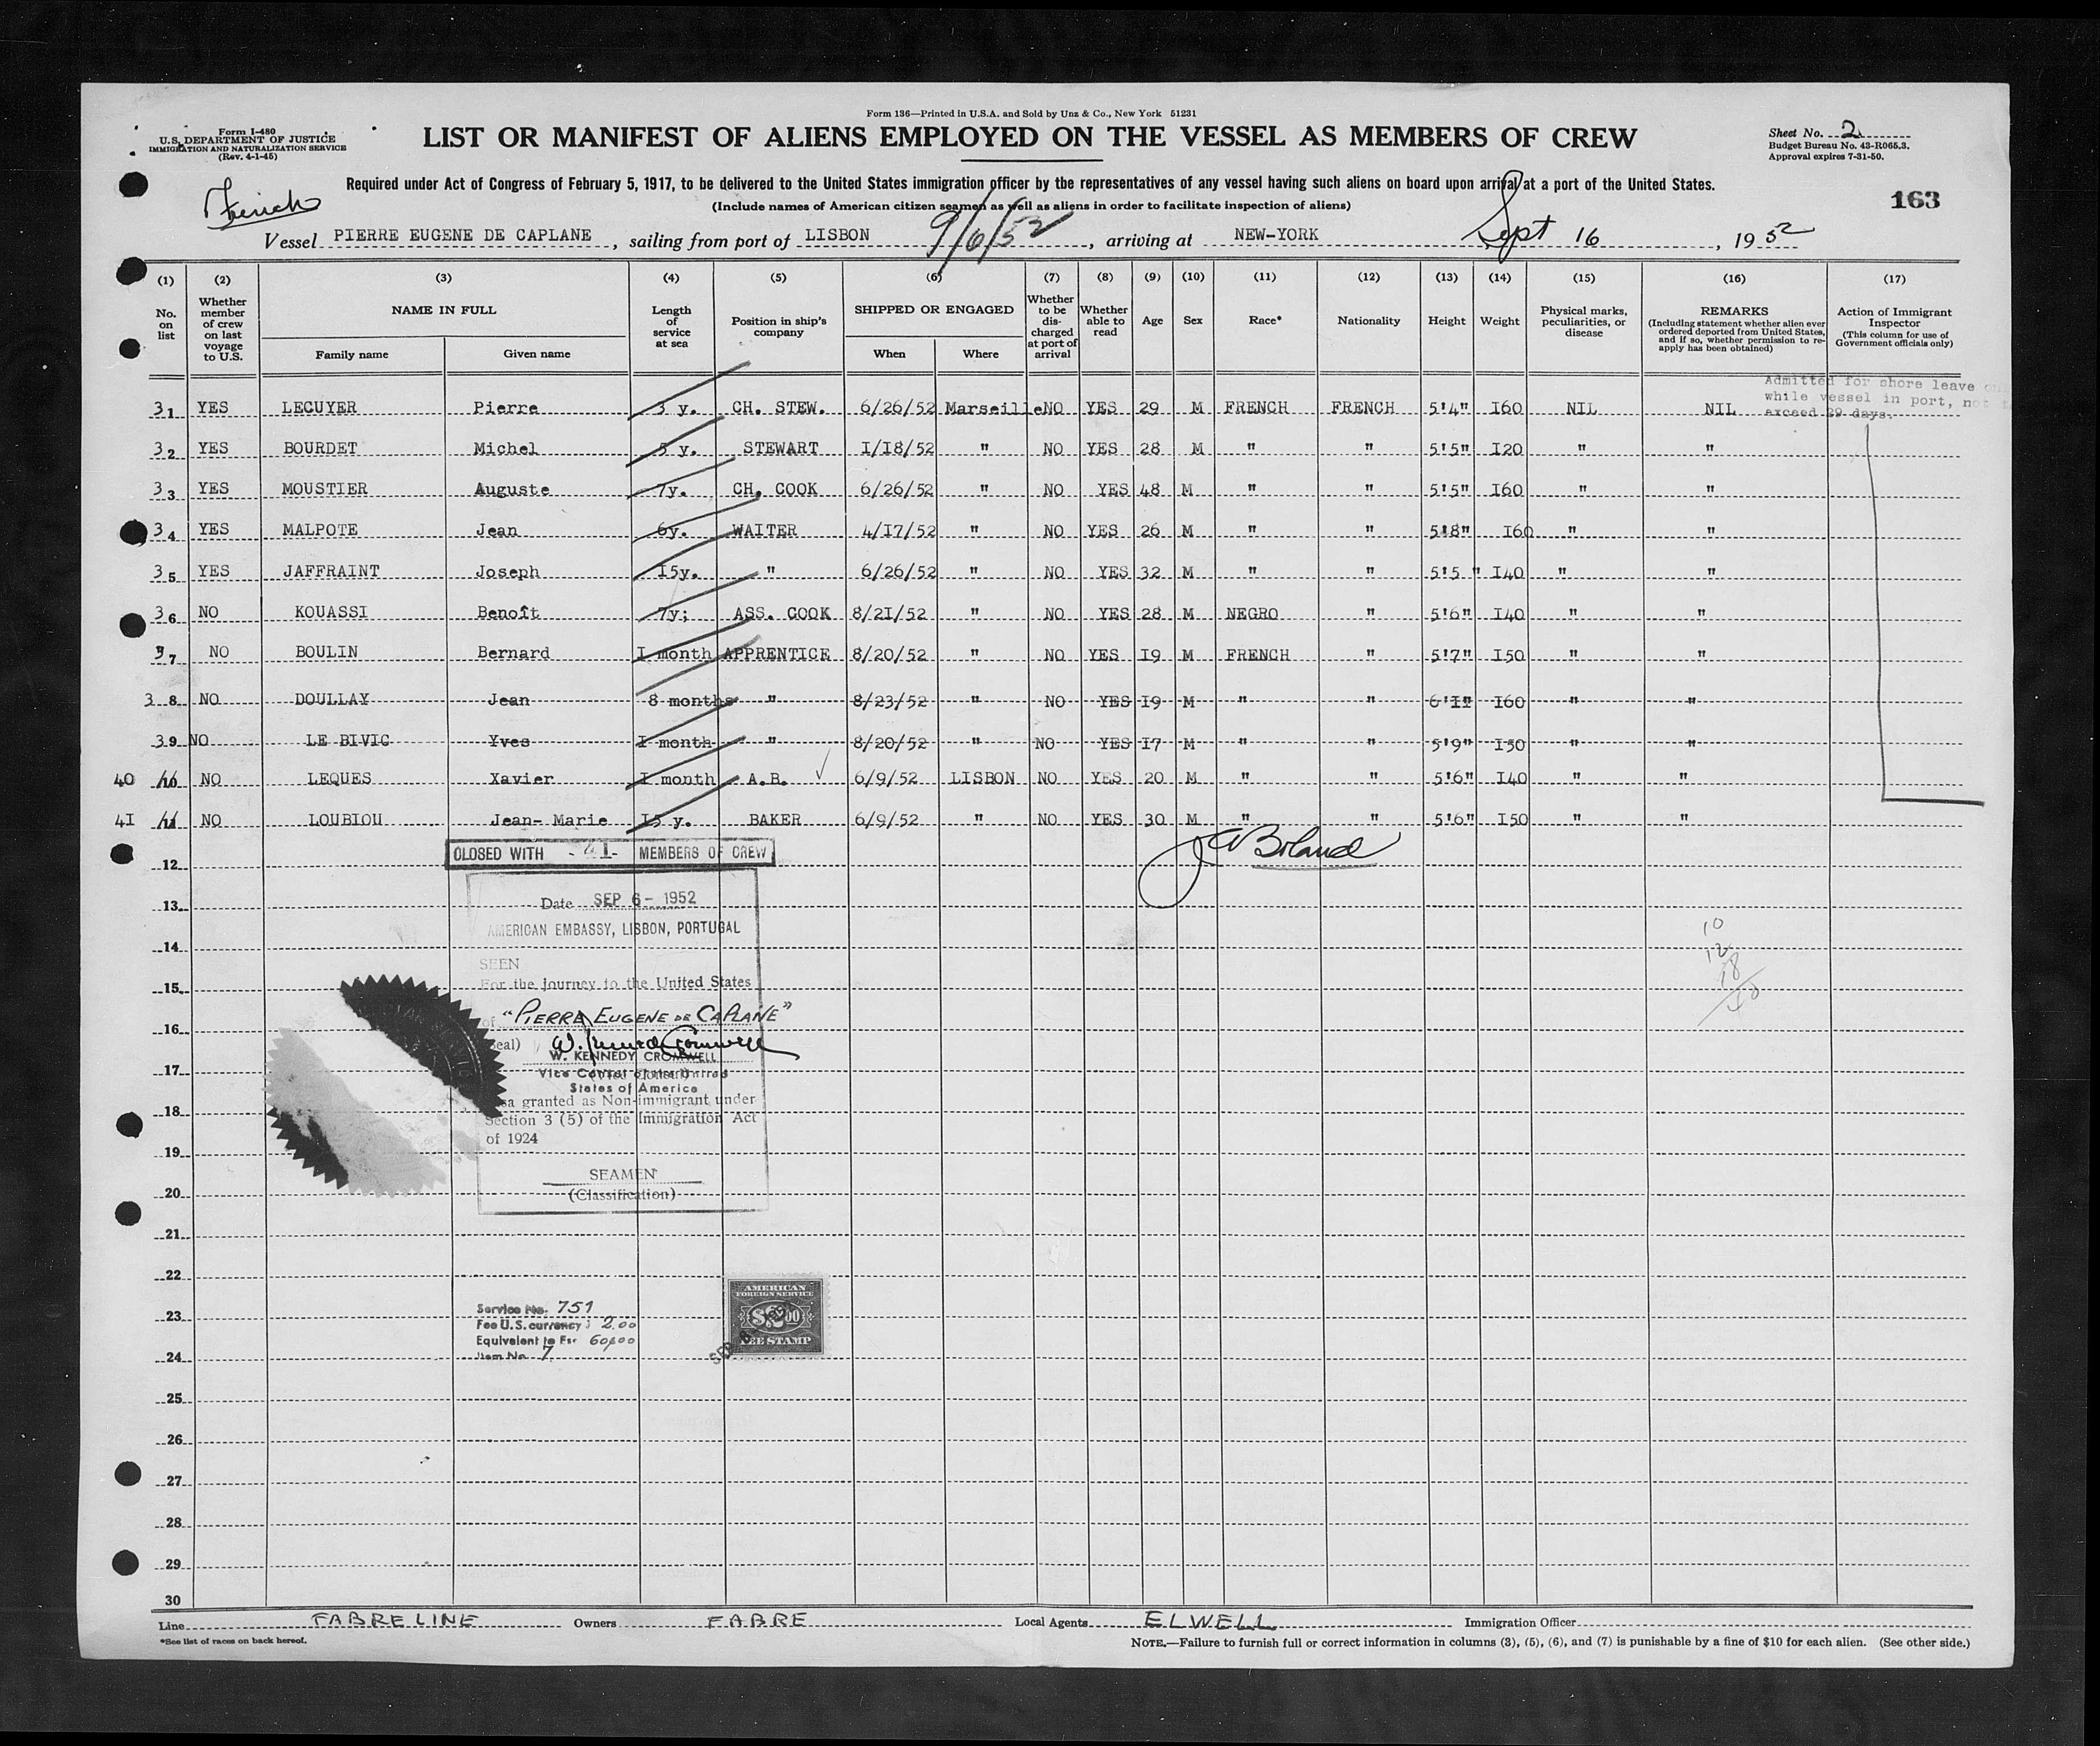 Form 136—Printed in U.S.A. and Sold by Unz & Co., New York 51231
Form I-480
U.S. DEPARTMENT OF JUSTICE
IMMIGRATION AND NATURALIZATION SERVICE
(Rev. 4-1-45)
LIST OR MANIFEST OF ALIENS EMPLOYED ON THE VESSEL AS MEMBERS OF CREW
Sheet No. 2
Budget Bureau No. 43-R065.3.
Approval expires 7-31-50.
Required under Act of Congress of February 5, 1917, to be delivered to the United States immigration officer by the representatives of any vessel having such aliens on board upon arrival at a port of the United States.
(Include names of American citizen seamen as well as aliens in order to facilitate inspection of aliens)
163
French
Vessel PIERRE EUGENE DE CAPLANE, sailing from port of LISBON 9/6/52, arriving at NEW-YORK Sept 16, 1952
(1) (2) (3) (4) (5) (6) (7) (8) (9) (10) (11) (12) (13) (14) (15) (16) (17)
No. on list
Whether member of crew on last voyage to U.S.
NAME IN FULL
Family name
Given name
Length of service at sea
Position in ship's company
SHIPPED OR ENGAGED
When
Where
Whether to be discharged at port of arrival
Whether able to read
Age
Sex
Race*
Nationality
Height
Weight
Physical marks, peculiarities, or disease
REMARKS
(Including statement whether alien ever ordered deported from United States, and if so, whether permission to reapply has been obtained)
Action of Immigrant Inspector
(This column for use of Government officials only)
Admitted for shore leave
while vessel in port, not
exceed 29 days.
31 YES LECUYER Pierre 3 y. CH. STEW. 6/26/52 Marseille NO YES 29 M FRENCH FRENCH 5'4" I60 NIL NIL
32 YES BOURDET Michel 5 y. STEWART I/I8/52 " NO YES 28 M " " 5'5" I20 " "
33 YES MOUSTIER Auguste 7y. CH. COOK 6/26/52 " NO YES 48 M " " 5'5" I60 " "
34 YES MALPOTE Jean 6y. WAITER 4/I7/52 " NO YES 26 M " " 5'8" I60 " "
35 YES JAFFRAINT Joseph I5y. " 6/26/52 " NO YES 32 M " " 5'5 " I40 " "
36 NO KOUASSI Benoît 7y; ASS. COOK 8/2I/52 " NO YES 28 M NEGRO " 5'6" I40 " "
37 NO BOULIN Bernard I month APPRENTICE 8/20/52 " NO YES I9 M FRENCH " 5'7" I50 " "
38 NO DOULLAY Jean 8 months " 8/23/52 " NO YES I9 M " " 6'I" I60 " "
39 NO LE BIVIC Yves I month " 8/20/52 " NO YES I7 M " " 5'9" I50 " "
40 10 NO LEQUES Xavier I month A.B. ✓ 6/9/52 LISBON NO YES 20 M " " 5'6" I40 " "
4I 11 NO LOUBIOU Jean- Marie I5 y. BAKER 6/9/52 " NO YES 30 M " " 5'6" I50 " "
CLOSED WITH - 41- MEMBERS OF CREW
Boland
12
13
Date SEP 6 - 1952
AMERICAN EMBASSY, LISBON, PORTUGAL
14
10
12
18
40
SEEN
15
For the journey to the United States
of "PIERRE EUGENE DE CAPLANE"
16
(Seal) W. Kennedy Cromwell
W. KENNEDY CROMWELL
17
Vice Consul of the United
States of America
Visa granted as Non-immigrant under
18
Section 3 (5) of the Immigration Act
of 1924
19
SEAMEN
20
(Classification)
21
22
23
24
Service No. 751
Fee U.S. currency: 2.00
Equivalent to Esc 60$00
Item No. 7
AMERICAN
FOREIGN SERVICE
$2.00
FEE STAMP
25
26
27
28
29
30
Line FABRE LINE Owners FABRE Local Agents ELWELL Immigration Officer
*See list of races on back hereof.
NOTE.—Failure to furnish full or correct information in columns (3), (5), (6), and (7) is punishable by a fine of $10 for each alien. (See other side.)